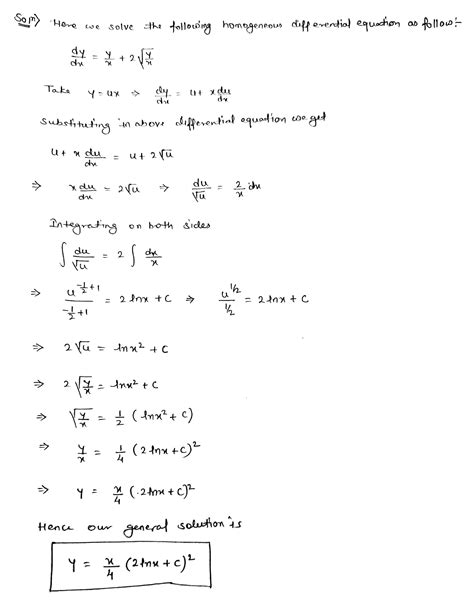 Soln) Here we solve the following homogeneous differential equation as follow:-
dy/dx = y/x + 2√(y/x)
Take y = ux ⇒ dy/dx = u + x du/dx
Substituting in above differential equation we get
u + x du/dx = u + 2√u
⇒ x du/dx = 2√u ⇒ du/√u = 2/x dx
Integrating on both sides
∫ du/√u = 2 ∫ dx/x
⇒ u^(-1/2+1)/(-1/2+1) = 2 lnx + C ⇒ u^(1/2)/(1/2) = 2 lnx + C
⇒ 2√u = lnx² + C
⇒ 2√(y/x) = lnx² + C
⇒ √(y/x) = 1/2 (lnx² + C)
⇒ y/x = 1/4 (2 lnx + C)²
⇒ y = x/4 (2 lnx + C)²
Hence our general solution is
y = x/4 (2 lnx + C)²